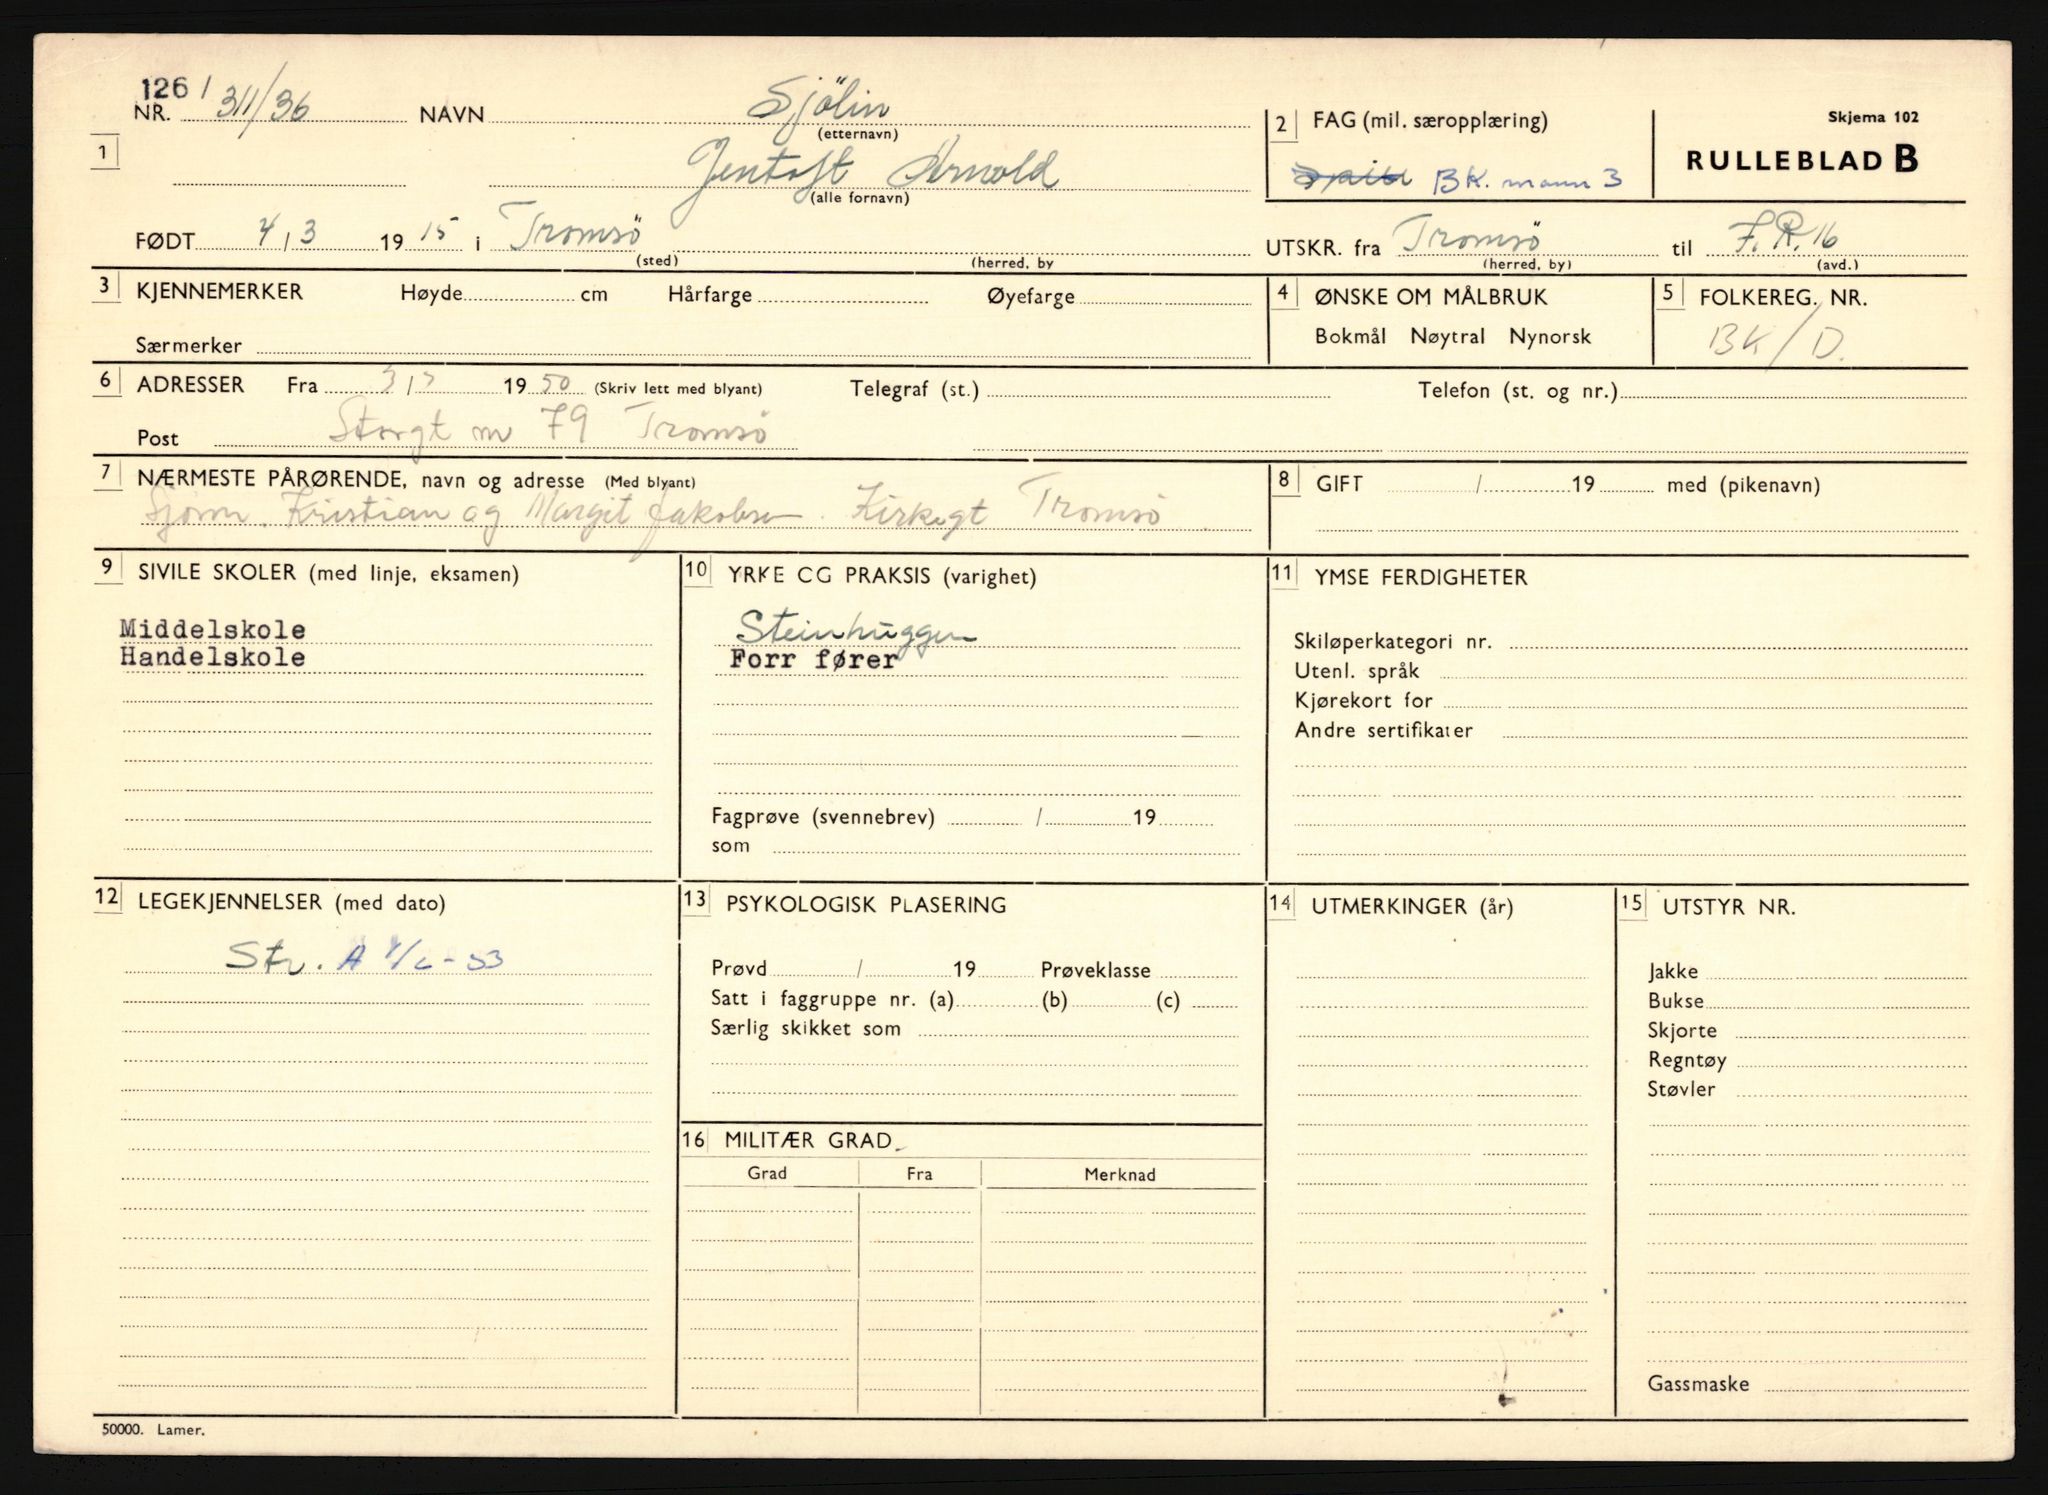 126 /
NR. 311/36 NAVN Sjölin
(etternavn)
2 FAG (mil. særopplæring)
Skjema 102
RULLEBLAD B
1
Jentoft Arnold
(alle fornavn)
BK. mann 3
FØDT 4 / 3 1915 i Tromsö
(sted) (herred, by
UTSKR. fra Tromsö til F.R. 16
(herred, by) (avd.)
3 KJENNEMERKER Høyde cm Hårfarge Øyefarge
Særmerker
4 ØNSKE OM MÅLBRUK
Bokmål Nøytral Nynorsk
5 FOLKEREG. NR.
BK/D.
6 ADRESSER Fra 3 / 1950 (Skriv lett med blyant) Telegraf (st.) Telefon (st. og nr.)
Post Storgt nr 79 Tromsö
7 NÆRMESTE PÅRØRENDE, navn og adresse (Med blyant)
Kristian og Margit Jakobsen Kirkegt Tromsö
8 GIFT / 19 med (pikenavn)
9 SIVILE SKOLER (med linje, eksamen)
Middelskole
Handelskole
10 YRKE CG PRAKSIS (varighet)
Steinhugger
Forr fører
Fagprøve (svennebrev) / 19
som
11 YMSE FERDIGHETER
Skiløperkategori nr.
Utenl. språk
Kjørekort for
Andre sertifikater
12 LEGEKJENNELSER (med dato)
Str. A 1/6-53
13 PSYKOLOGISK PLASERING
Prøvd / 19 Prøveklasse
Satt i faggruppe nr. (a) (b) (c)
Særlig skikket som
14 UTMERKINGER (år)
15 UTSTYR NR.
Jakke
Bukse
Skjorte
Regntøy
Støvler
Gassmaske
16 MILITÆR GRAD
Grad Fra Merknad
50000. Lamer.